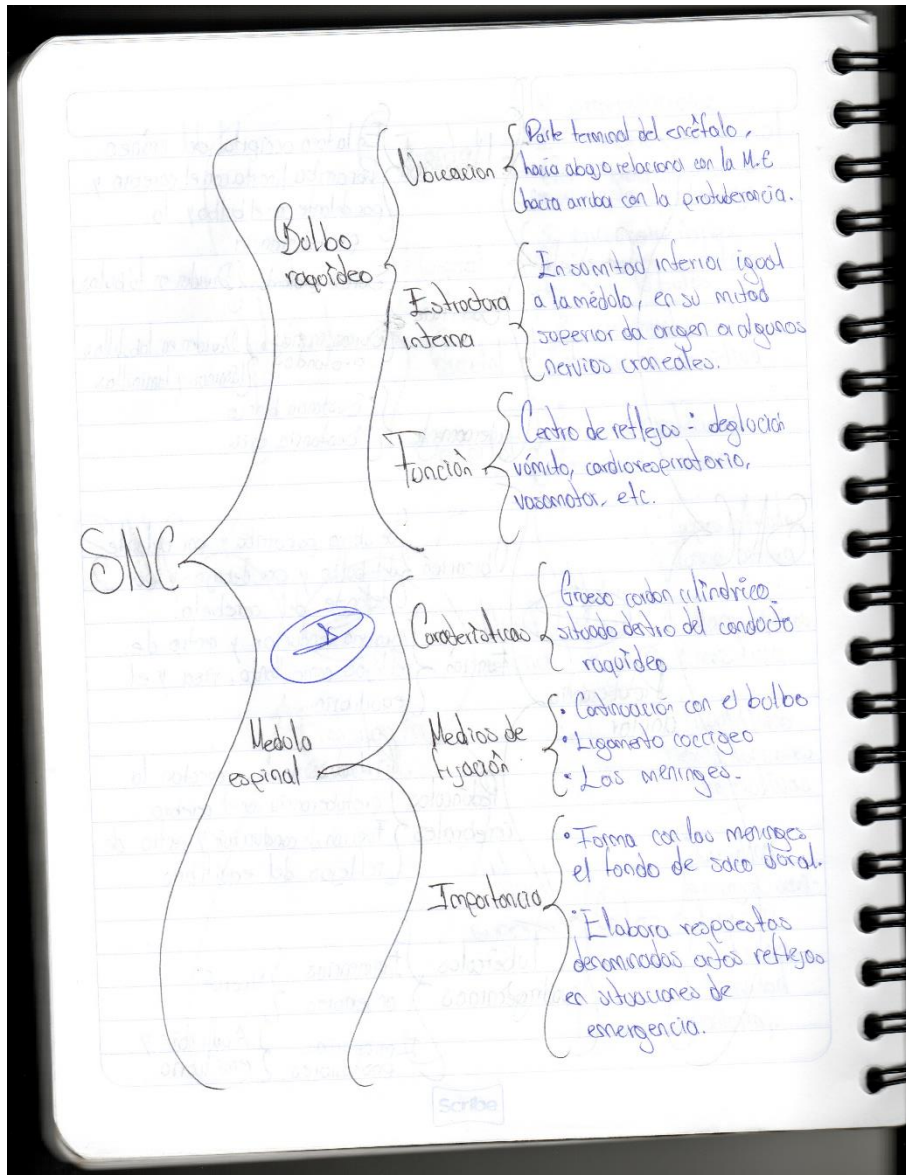 SNC
Bulbo
raquídeo
Ubicación
Parte terminal del encéfalo,
hacia abajo relaciona con la M.E
hacia arriba con la protuberancia.
Estructura
interna
En su mitad inferior igual
a la médula, en su mitad
superior da origen a algunos
nervios craneales.
Función
Centro de reflejos: deglución
vómito, cardiorespiratorio,
vasomotor, etc.
Medula
espinal
Características
Grueso cordon cilíndrico
situado dentro del conducto
raquídeo
Medios de
fijación
• Continuación con el bulbo
• Ligamento coccigeo
• Las meninges.
Importancia
• Forma con las meninges
el fondo de saco dural.
• Elabora respuestas
denominadas actos reflejos
en situaciones de
emergencia.
Scribe